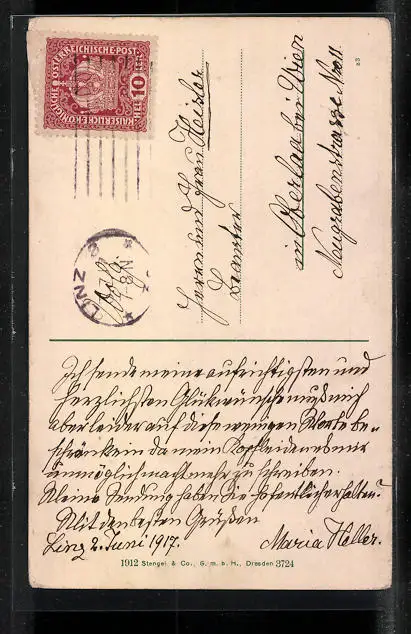 KAISERLICHE KÖNIGLICHE ÖSTERREICHISCHE POST
HELLER 10 HELLER
LINZ
Herrn und Frau Heisler
Beamter
in Oberlaa bei Wien
Neugrabenstrasse No 11
Ich sende meine aufrichtigsten und
herzlichsten Glükwünsche muß mich
aber leider auf diese wenigen Worte be=
schränken da mein Kopfleiden es mir
unmöglich macht mehr zu schreiben.
Kleine Sendung haben Sie hofentlich erhalten.
Mit den besten Grüßen
Linz 2. Juni 1917. Maria Heller.
1912 Stengel & Co., G. m. b. H., Dresden 3724